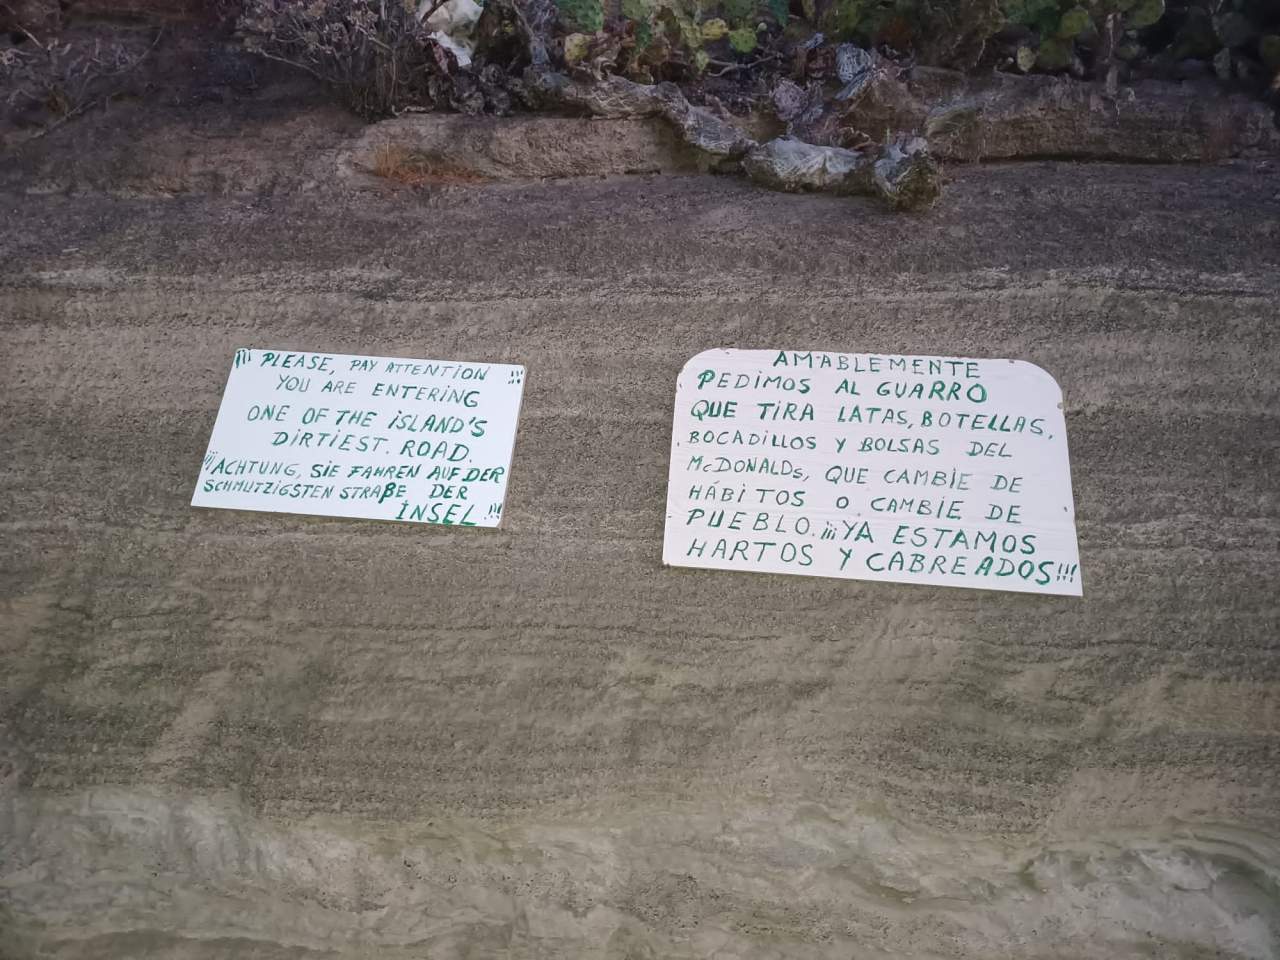 ¡¡¡ PLEASE, PAY ATTENTION !!!
YOU ARE ENTERING
ONE OF THE ISLAND'S
DIRTIEST. ROAD.
¡¡¡ACHTUNG, SIE FAHREN AUF DER
SCHMUTZIGSTEN STRAßE DER
INSEL !!!
AMABLEMENTE
PEDIMOS AL GUARRO
QUE TIRA LATAS, BOTELLAS,
BOCADILLOS Y BOLSAS DEL
McDONALDs, QUE CAMBIE DE
HÁBITOS O CAMBIE DE
PUEBLO. ¡¡¡YA ESTAMOS
HARTOS Y CABREADOS!!!